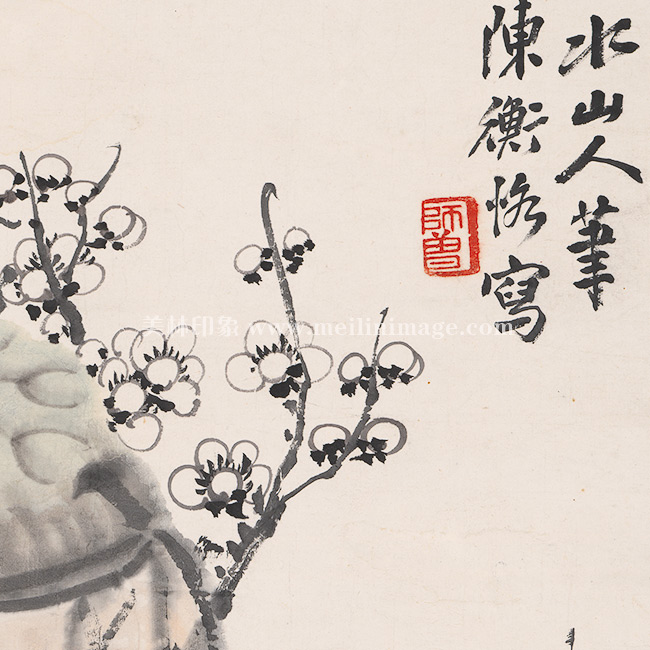 氷山人筆
陳衡恪寫
師曾
美林印象 www.meilinimage.com